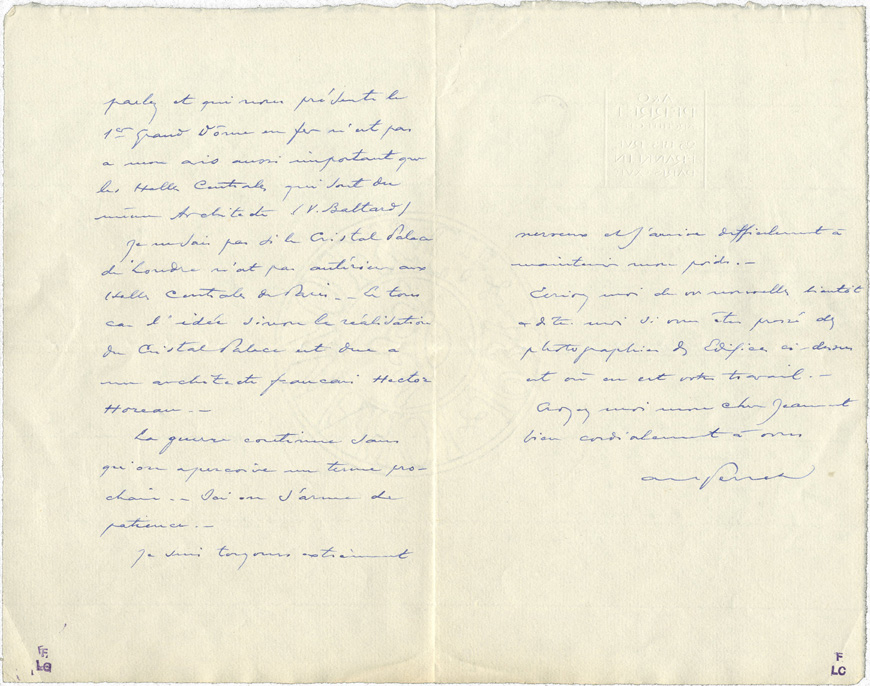 parlez et qui nous présente le
1er Grand Dôme en fer n'est pas
a mon avis aussi important que
les Halles Centrales qui sont du
même Architecte (V. Baltard)
Je ne sais pas si le Cristal Palace
de Londre n'est pas antérieur aux
Halles Centrales de Paris. — En tous
cas l'idée sinon la réalisation
du Cristal Palace est due a
un architecte francais Hector
Horeau. —
La guerre continue sans
qu'on apercoive un terme pro-
chain. — Ici on s'arme de
patience. —
Je suis toujours extrèment
nerveux et j'arrive difficilement à
maintenir mon poids. —
Ecrivez moi de vos nouvelles bientôt
& dites moi si vous êtes pressé des
photographies des Edifices ci-dessus
et où en est votre travail. —
Croyez moi mon cher Jeanneret
bien cordialement à vous
Perret
F
LC
F
LC